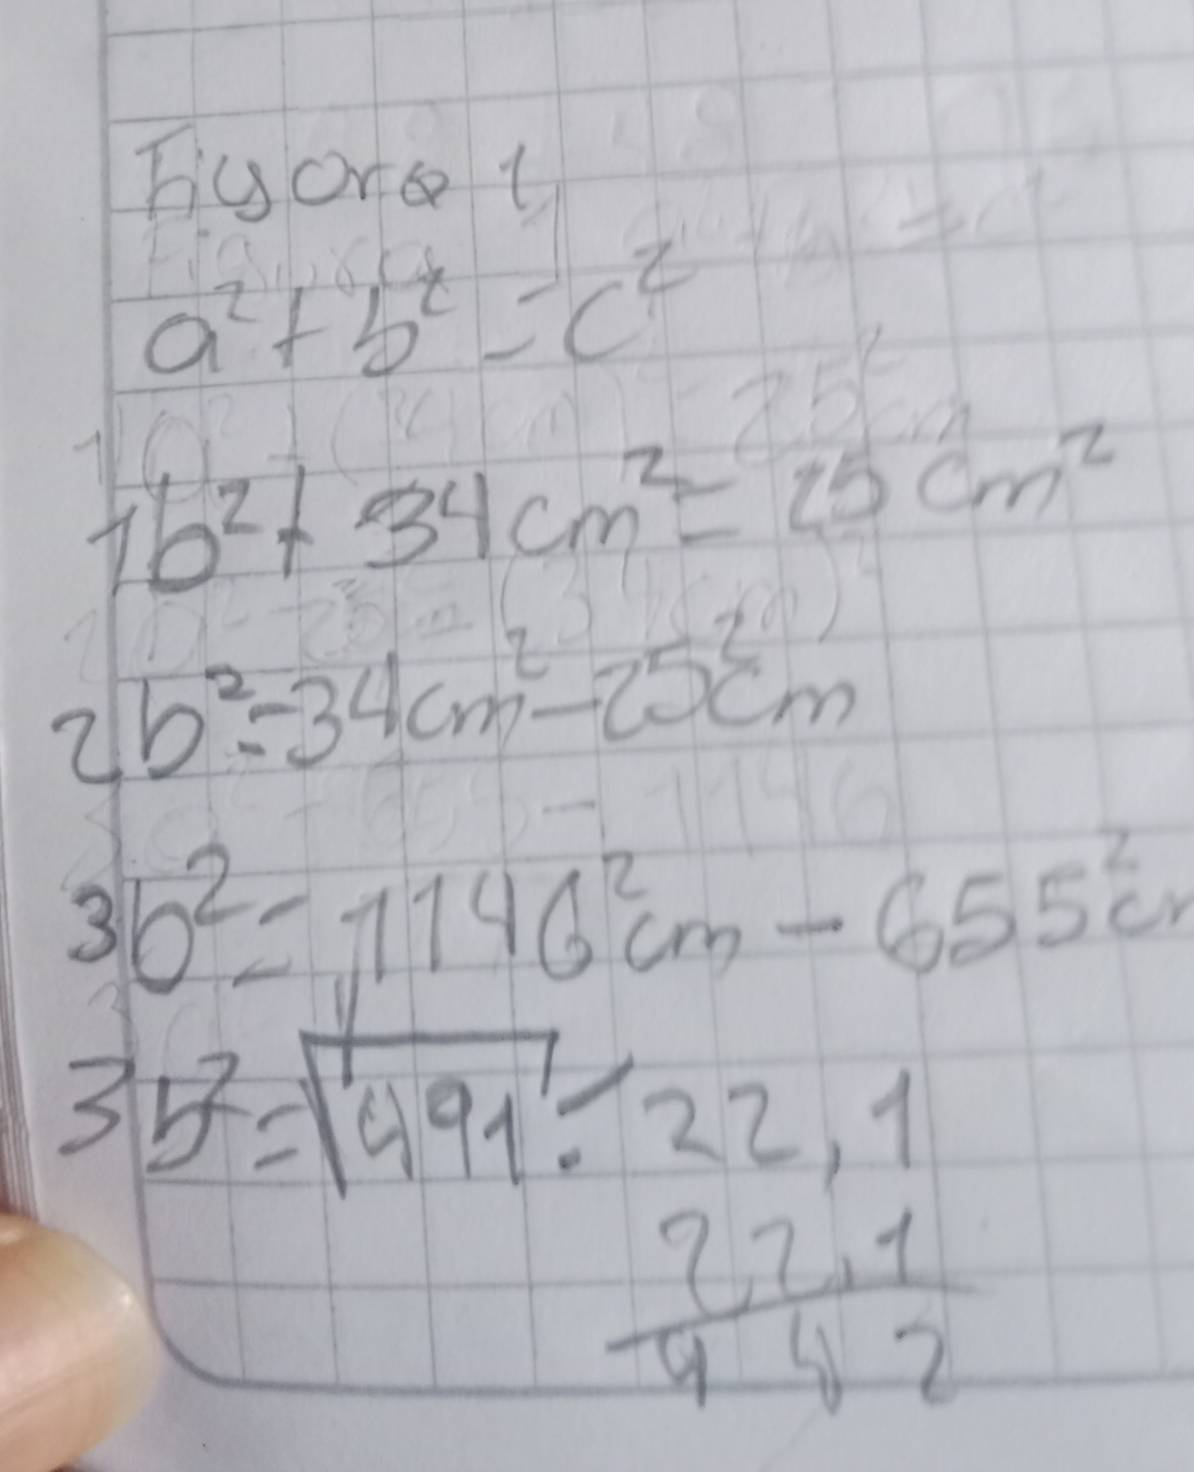 Figura 1
a² + b² = c²
1 b² + 34 cm² = 25 cm²
2 b² = 34 cm² - 25² cm
3 b² = 1146² cm - 655² cm
3 b² = √491 = 22,1
22,1
442